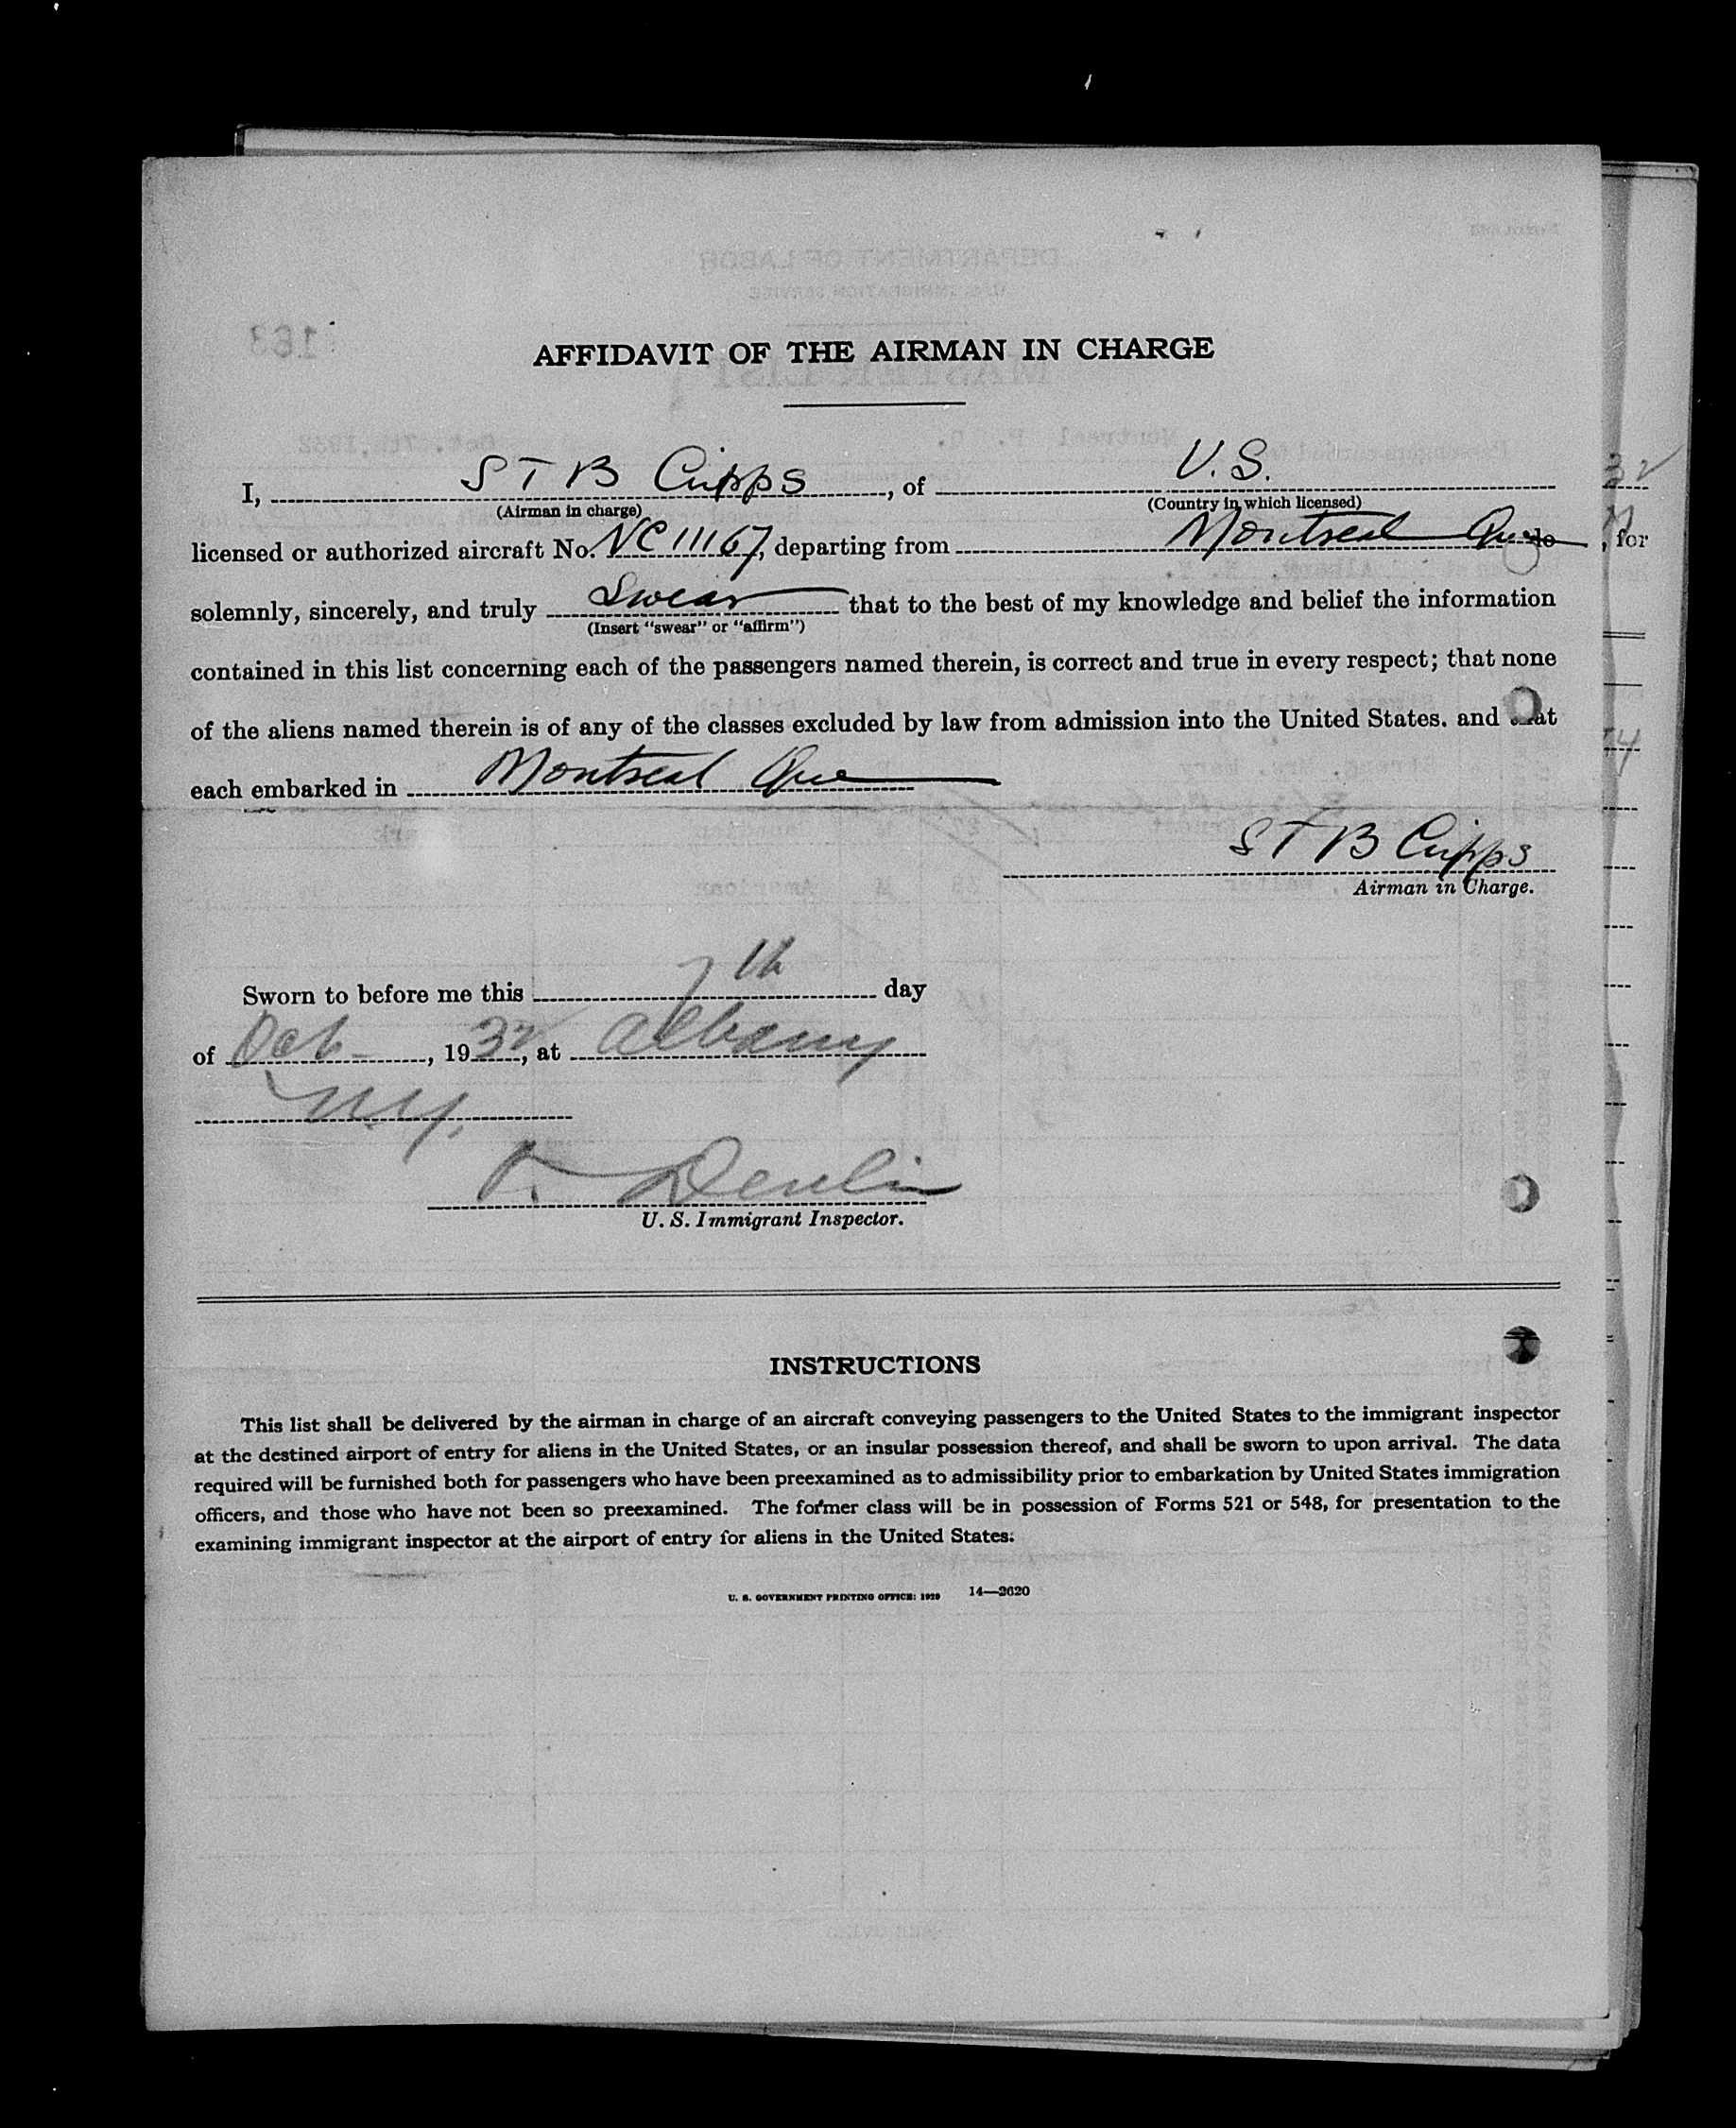 AFFIDAVIT OF THE AIRMAN IN CHARGE
I, S T B Cripps, of U.S.
(Airman in charge) (Country in which licensed)
licensed or authorized aircraft No. NC 11167, departing from Montreal Que do
solemnly, sincerely, and truly Swear that to the best of my knowledge and belief the information
(Insert "swear" or "affirm")
contained in this list concerning each of the passengers named therein, is correct and true in every respect; that none
of the aliens named therein is of any of the classes excluded by law from admission into the United States. and that
each embarked in Montreal Que
S T B Cripps
Airman in Charge.
Sworn to before me this 7th day
of Oct, 1932, at Albany
N.Y.
Devlin
U. S. Immigrant Inspector.
INSTRUCTIONS
This list shall be delivered by the airman in charge of an aircraft conveying passengers to the United States to the immigrant inspector
at the destined airport of entry for aliens in the United States, or an insular possession thereof, and shall be sworn to upon arrival. The data
required will be furnished both for passengers who have been preexamined as to admissibility prior to embarkation by United States immigration
officers, and those who have not been so preexamined. The former class will be in possession of Forms 521 or 548, for presentation to the
examining immigrant inspector at the airport of entry for aliens in the United States.
U. S. GOVERNMENT PRINTING OFFICE: 1929 14—2620
, for